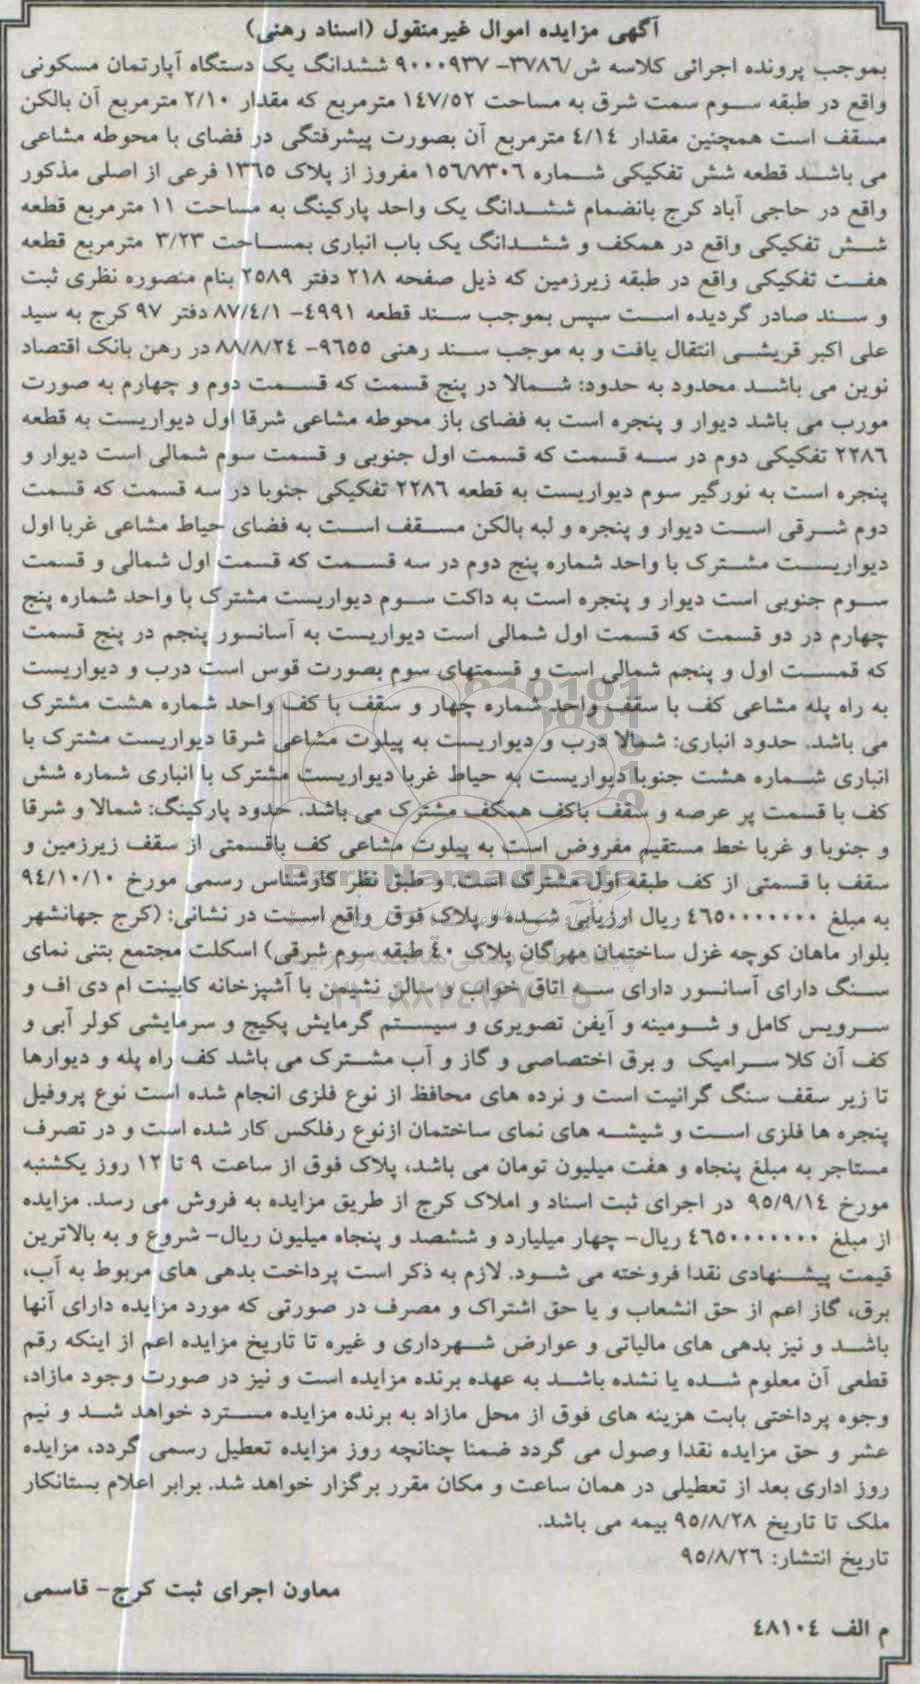 آگهی مزایده اموال غیرمنقول (اسناد رهنی)
بموجب پرونده اجرائی کلاسه ش/۳۷۸۶- ۹۰۰۰۹۳۷ ششدانگ یک دستگاه آپارتمان مسکونی
واقع در طبقه سوم سمت شرق به مساحت ۱۴۷/۵۲ مترمربع که مقدار ۲/۱۰ مترمربع آن بالکن
مسقف است همچنین مقدار ۴/۱۴ مترمربع آن بصورت پیشرفتگی در فضای با محوطه مشاعی
می باشد قطعه شش تفکیکی شماره ۱۵۶/۷۳۰۶ مفروز از پلاک ۱۳۶۵ فرعی از اصلی مذکور
واقع در حاجی آباد کرج بانضمام ششدانگ یک واحد پارکینگ به مساحت ۱۱ مترمربع قطعه
شش تفکیکی واقع در همکف و ششدانگ یک باب انباری بمساحت ۳/۲۳ مترمربع قطعه
هفت تفکیکی واقع در طبقه زیرزمین که ذیل صفحه ۲۱۸ دفتر ۲۵۸۹ بنام منصوره نظری ثبت
و سند صادر گردیده است سپس بموجب سند قطعه ۴۹۹۱- ۸۷/۴/۱ دفتر ۹۷ کرج به سید
علی اکبر قریشی انتقال یافت و به موجب سند رهنی ۹۶۵۵- ۸۸/۸/۲۴ در رهن بانک اقتصاد
نوین می باشد محدود به حدود: شمالا در پنج قسمت که قسمت دوم و چهارم به صورت
مورب می باشد دیوار و پنجره است به فضای باز محوطه مشاعی شرقا اول دیواریست به قطعه
۲۲۸۶ تفکیکی دوم در سه قسمت که قسمت اول جنوبی و قسمت سوم شمالی است دیوار و
پنجره است به نورگیر سوم دیواریست به قطعه ۲۲۸۶ تفکیکی جنوبا در سه قسمت که قسمت
دوم شرقی است دیوار و پنجره و لبه بالکن مسقف است به فضای حیاط مشاعی غربا اول
دیواریست مشترک با واحد شماره پنج دوم در سه قسمت که قسمت اول شمالی و قسمت
سوم جنوبی است دیوار و پنجره است به داکت سوم دیواریست مشترک با واحد شماره پنج
چهارم در دو قسمت که قسمت اول شمالی است دیواریست به آسانسور پنجم در پنج قسمت
که قمست اول و پنجم شمالی است و قسمتهای سوم بصورت قوس است درب و دیواریست
به راه پله مشاعی کف با سقف واحد شماره چهار و سقف با کف واحد شماره هشت مشترک
می باشد. حدود انباری: شمالا درب و دیواریست به پیلوت مشاعی شرقا دیواریست مشترک با
انباری شماره هشت جنوبا دیواریست به حیاط غربا دیواریست مشترک با انباری شماره شش
کف با قسمت پر عرصه و سقف باکف همکف مشترک می باشد. حدود پارکینگ: شمالا و شرقا
و جنوبا و غربا خط مستقیم مفروض است به پیلوت مشاعی کف باقسمتی از سقف زیرزمین و
سقف با قسمتی از کف طبقه اول مشترک است. و طبق نظر کارشناس رسمی مورخ ۹۴/۱۰/۱۰
به مبلغ ۴۶۵۰۰۰۰۰۰۰ ریال ارزیابی شده و پلاک فوق واقع است در نشانی: (کرج جهانشهر
بلوار ماهان کوچه غزل ساختمان مهرگان پلاک ۴۰ طبقه سوم شرقی) اسکلت مجتمع بتنی نمای
سنگ دارای آسانسور دارای سه اتاق خواب و سالن نشیمن با آشپزخانه کابینت ام دی اف و
سرویس کامل و شومینه و آیفن تصویری و سیستم گرمایش پکیج و سرمایشی کولر آبی و
کف آن کلا سرامیک و برق اختصاصی و گاز و آب مشترک می باشد کف راه پله و دیوارها
تا زیر سقف سنگ گرانیت است و نرده های محافظ از نوع فلزی انجام شده است نوع پروفیل
پنجره ها فلزی است و شیشه های نمای ساختمان ازنوع رفلکس کار شده است و در تصرف
مستاجر به مبلغ پنجاه و هفت میلیون تومان می باشد، پلاک فوق از ساعت ۹ تا ۱۲ روز یکشنبه
مورخ ۹۵/۹/۱۴ در اجرای ثبت اسناد و املاک کرج از طریق مزایده به فروش می رسد. مزایده
از مبلغ ۴۶۵۰۰۰۰۰۰۰ ریال- چهار میلیارد و ششصد و پنجاه میلیون ریال- شروع و به بالاترین
قیمت پیشنهادی نقدا فروخته می شود. لازم به ذکر است پرداخت بدهی های مربوط به آب،
برق، گاز اعم از حق انشعاب و یا حق اشتراک و مصرف در صورتی که مورد مزایده دارای آنها
باشد و نیز بدهی های مالیاتی و عوارض شهرداری و غیره تا تاریخ مزایده اعم از اینکه رقم
قطعی آن معلوم شده یا نشده باشد به عهده برنده مزایده است و نیز در صورت وجود مازاد،
وجوه پرداختی بابت هزینه های فوق از محل مازاد به برنده مزایده مسترد خواهد شد و نیم
عشر و حق مزایده نقدا وصول می گردد ضمنا چنانچه روز مزایده تعطیل رسمی گردد، مزایده
روز اداری بعد از تعطیلی در همان ساعت و مکان مقرر برگزار خواهد شد. برابر اعلام بستانکار
ملک تا تاریخ ۹۵/۸/۲۸ بیمه می باشد.
تاریخ انتشار: ۹۵/۸/۲۶
معاون اجرای ثبت کرج- قاسمی
م الف ۴۸۱۰۴